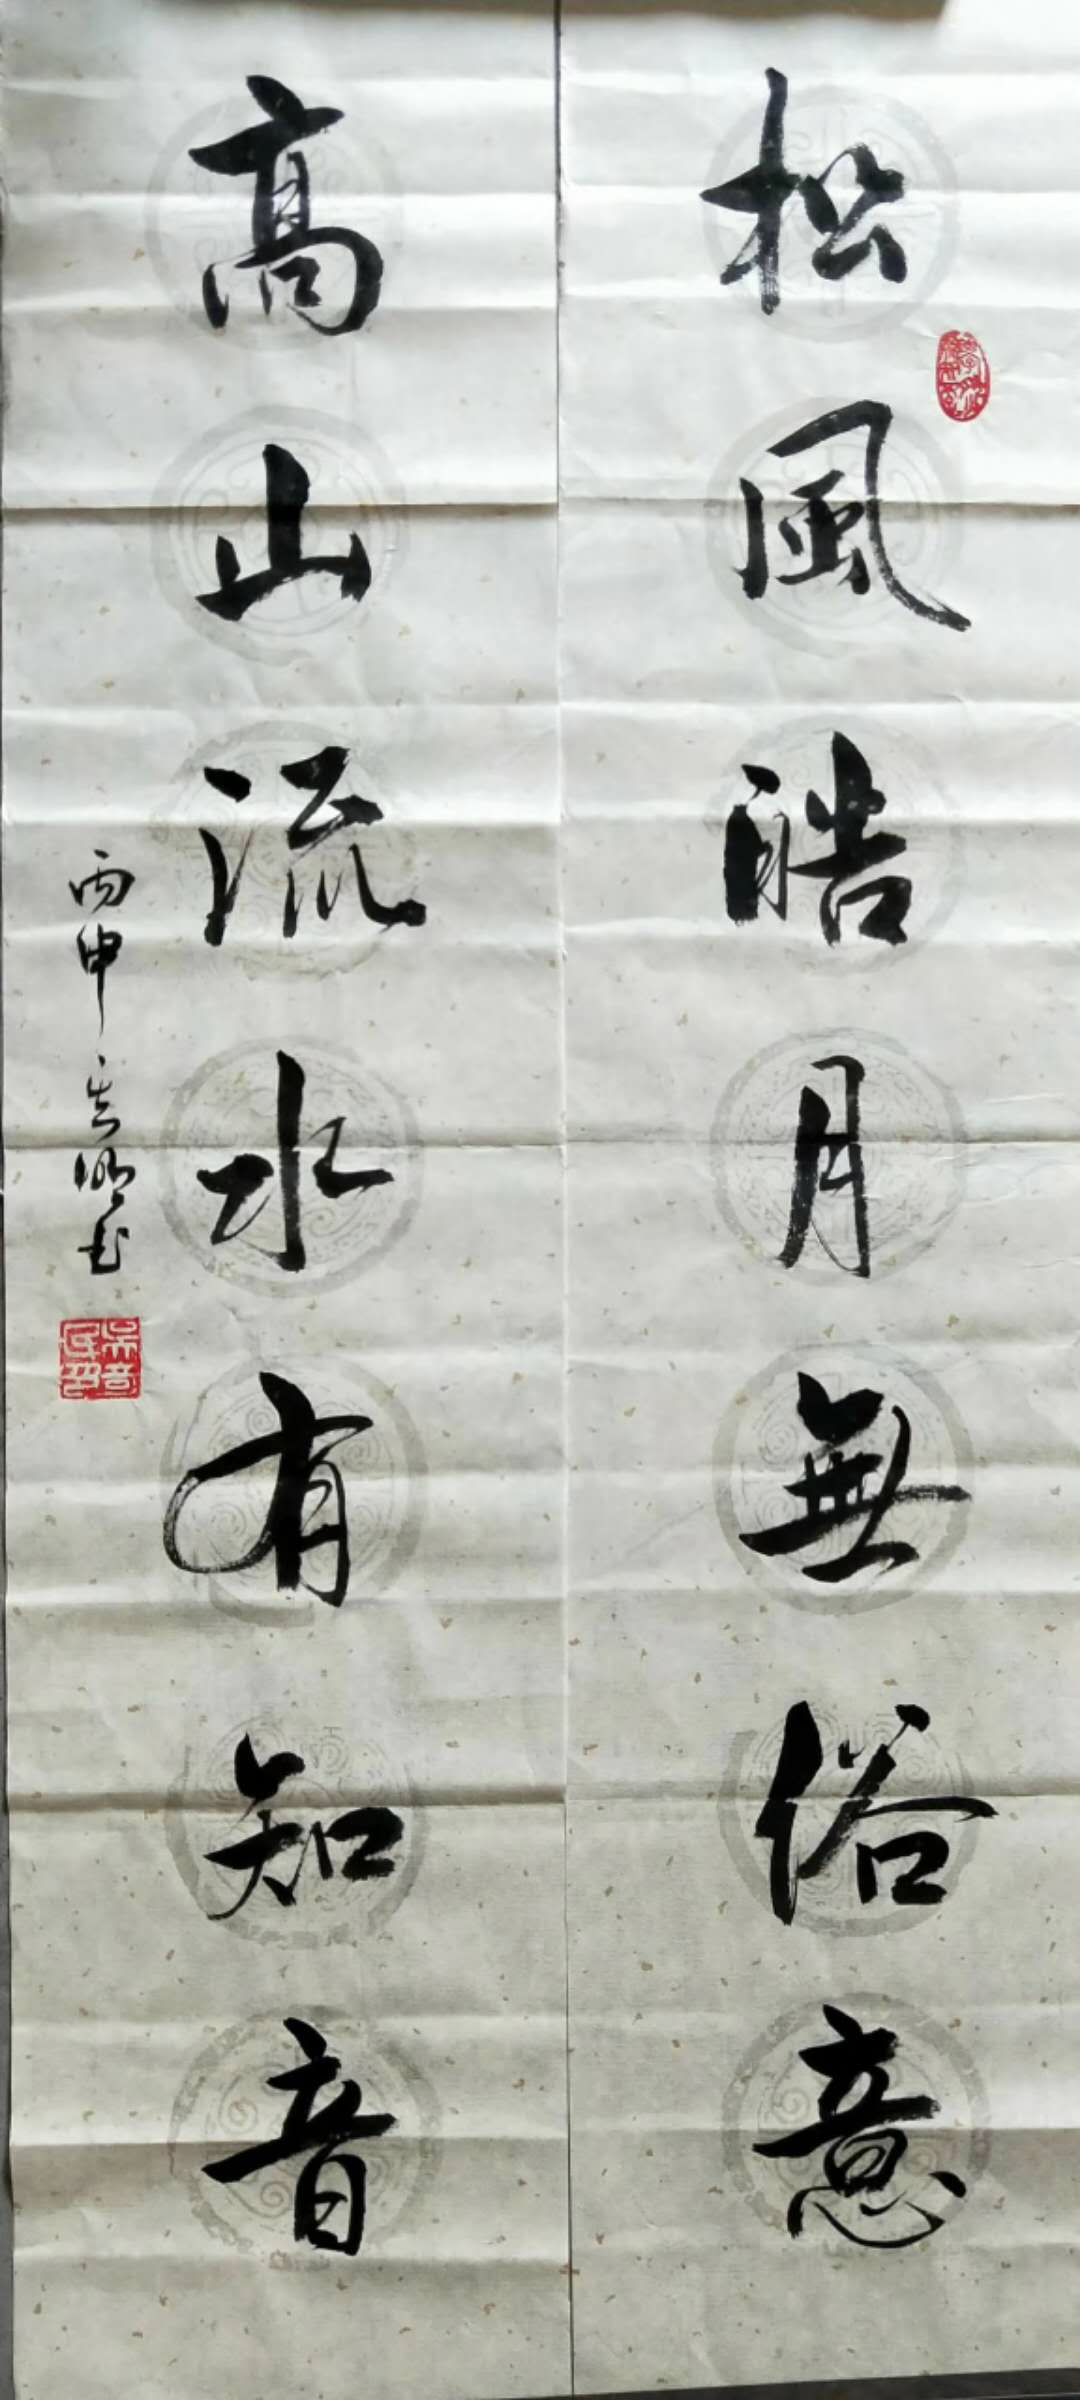 松風皓月無俗意
高山流水有知音
丙申